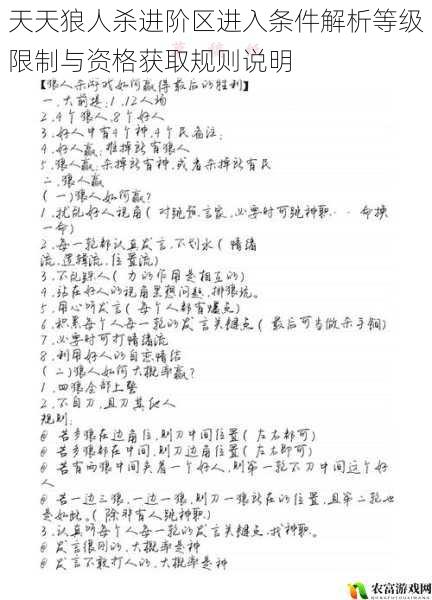 天天狼人杀进阶区进入条件解析等级
限制与资格获取规则说明
【狼人杀游戏如何赢得最后的胜利】
一.大前提:1.12人场
2.4个狼人,8个好人
3.好人中有4个神,4个民备注:
4.好人赢:推掉所有狼人
5.狼人赢:杀掉所有神,或者杀掉所有民
二.狼人赢
(一)狼人如何赢?
1.扰乱好人视角(对跳预言家,必要时可跳神职··命换
一命)
2.每一轮都认真发言,不划水(情绪
流,逻辑流,位置流)
3.不乱踩人(力的作用是相互的)
4.站在好人的视角思想问题,排狼坑。
5.用心听发言(每个人都有爆点)
6.积累每个人每一轮的发言关键点(最后可当做杀手锏)
7.必要时可打情绪流
8.利用好人的自恋情结
(二)狼人如何大概率赢?
1.四狼全部上警
2.不自刀,且刀其他人
规则:
@ 若多狼在边角位,则刀中间位置(左右都可)
@ 若多狼都在中间,则刀边角位(左右即可)
@ 若有两狼中间夹着一个好人,则第一轮不刀中间这个好
人
@ 若一边三狼,一边一狼,则刀一狼所在的位置,且第二轮也
是如此。(除非有人跳神职)
3.认真听每个人每一轮的发言关键点,找神职。
@ 发言很刚的,大概率是神
@ 发言不敢打人的,大概率是神
农富游戏网
NONGFUYOUXI.COM